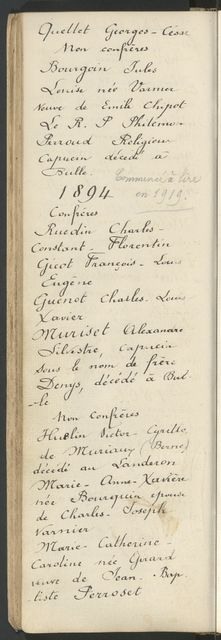 Quellet Georges-César
Non confrères
Bourgoin Jules
Louise née Varnier
Veuve de Emile Chipot
Le R. P. Philémon
Perroud Religieux
Capucin décédé à
Bulle.
Commencé à lire
en 1919.
1894
Confrères
Ruedin Charles-
Constant-Florentin
Gicot François-Louis
Eugène
Guenot Charles Louis
Xavier
Muriset Alexandre
Silvestre, capucin
sous le nom de frère
Denys, décédé à Bul-
-le
Non confrères
Huelin Victor-Cyrille
de Muriaux (Berne)
décédé au Landeron
Marie-Anne-Xavière
née Bourquin épouse
de Charles-Joseph
Varnier
Marie-Catherine-
Caroline née Girard
veuve de Jean-Bap-
tiste Perroset